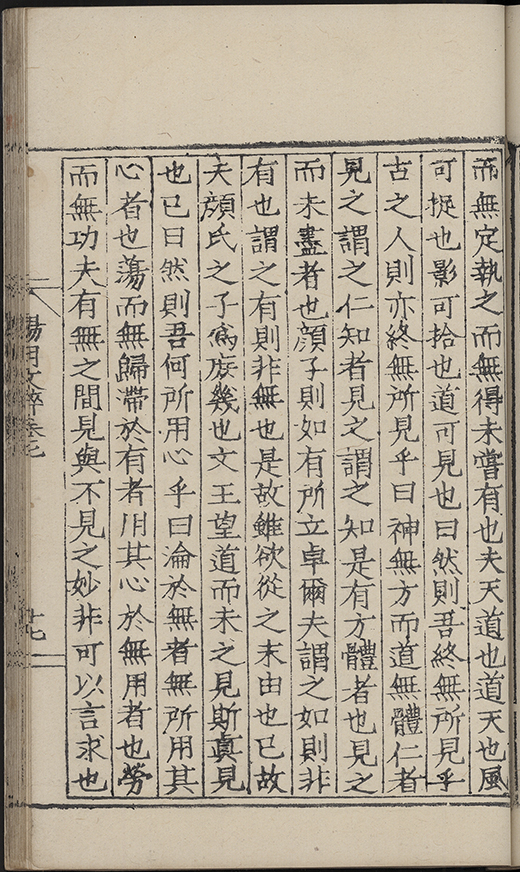 而無定執之而無得未嘗有也夫天道也道天也風
可捉也影可拾也道可見也曰然則吾終無所見乎
古之人則亦終無所見乎曰神無方而道無體仁者
見之謂之仁知者見之謂之知是有方體者也見之
而未盡者也顏子則如有所立卓爾夫謂之如則非
有也謂之有則非無也是故雖欲從之末由也已故
夫顏氏之子爲庶幾也文王望道而未之見斯眞見
也已曰然則吾何所用心乎曰淪於無者無所用其
心者也蕩而無歸滯於有者用其心於無用者也勞
而無功夫有無之間見與不見之妙非可以言求也
陽明文粹卷七
廿七